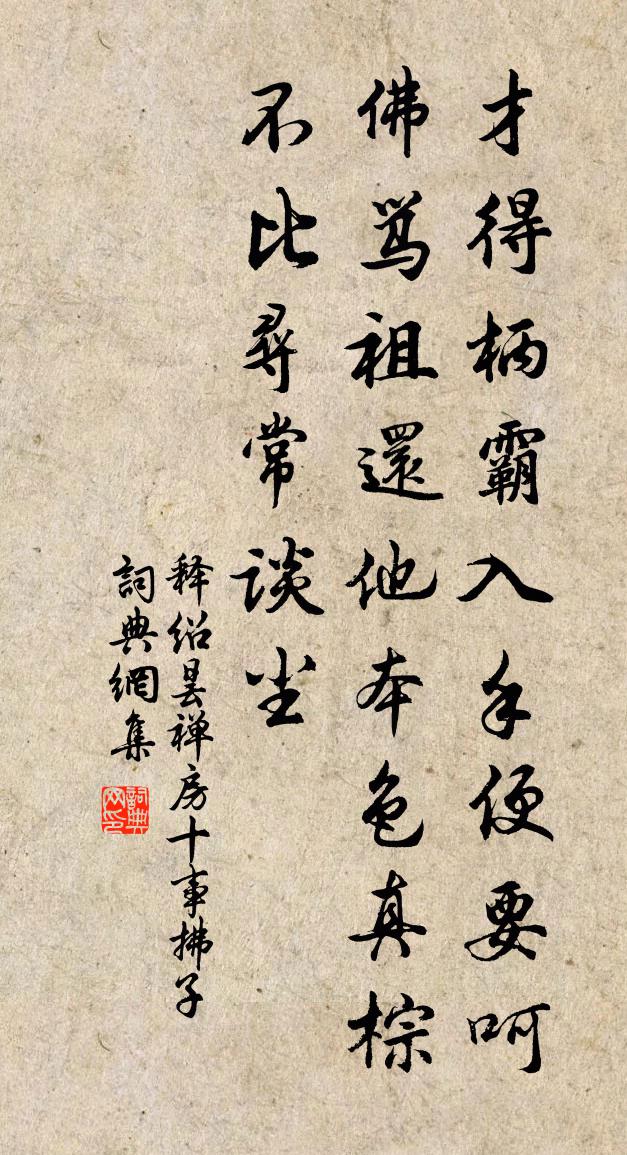 才得柄霸入手便要呵
佛骂祖還他本色真棕
不比尋常談尘
释绍昙禅房十事拂子
詞典網集
詞典网印